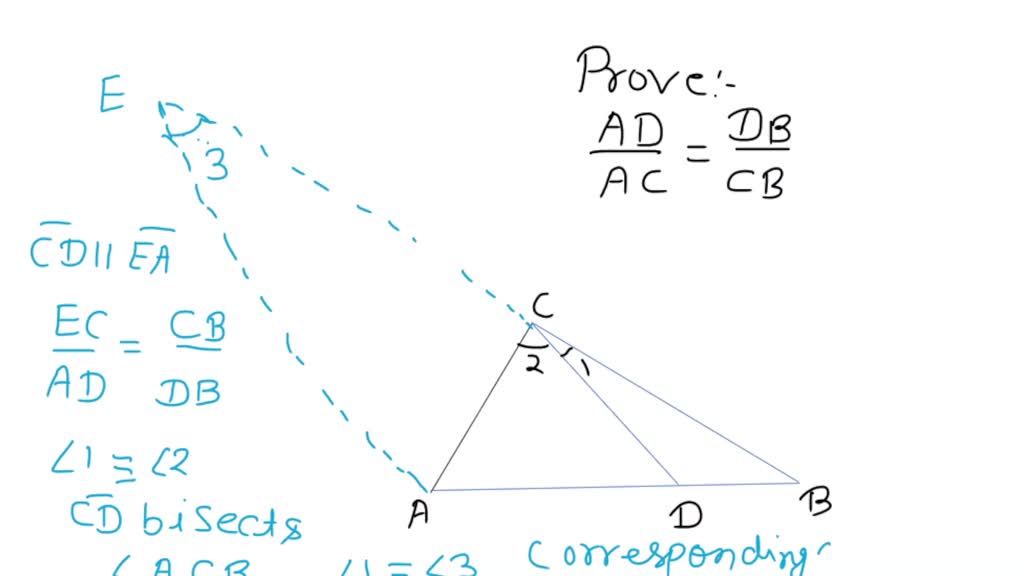 Prove:-
AD/AC = DB/CB
E
3
CD || EA
EC/AD = CB/DB
∠1 ≅ ∠2
CD bisects
∠ACB
∠1 ≅ ∠3
corresponding
C
2
1
A
D
B